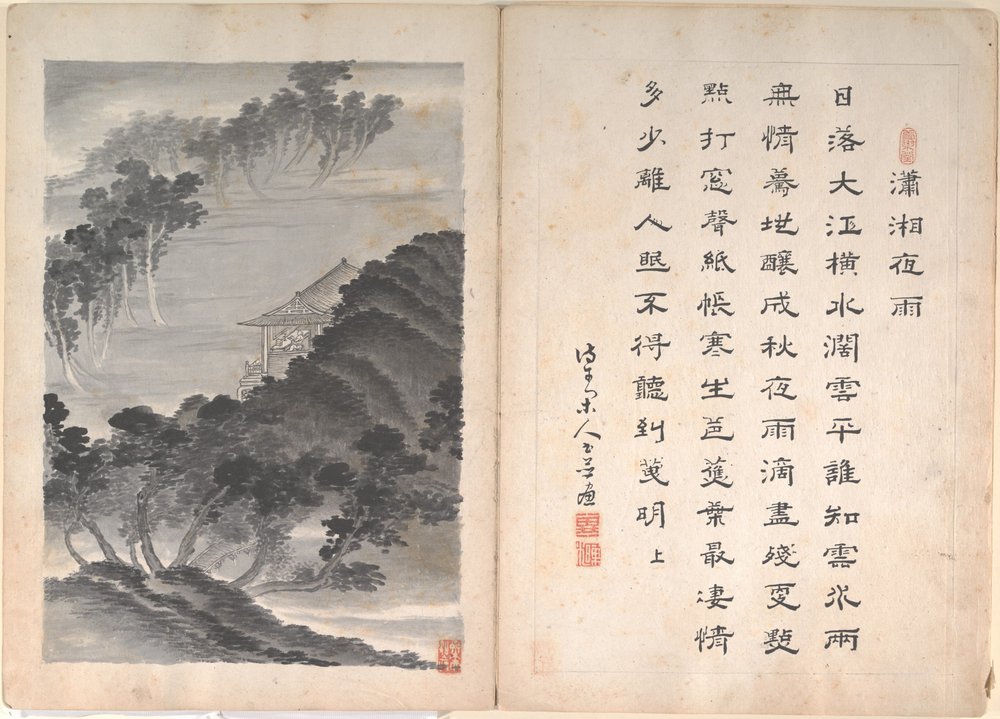 瀟湘夜雨
日落大江橫水闊雲平誰知雲水兩
無情驀地釀成秋夜雨滴盡殘更點
點打窓聲紙帳寒生芭蕉葉最凄情
多少離人眠不得聽到明 上
人書并畫